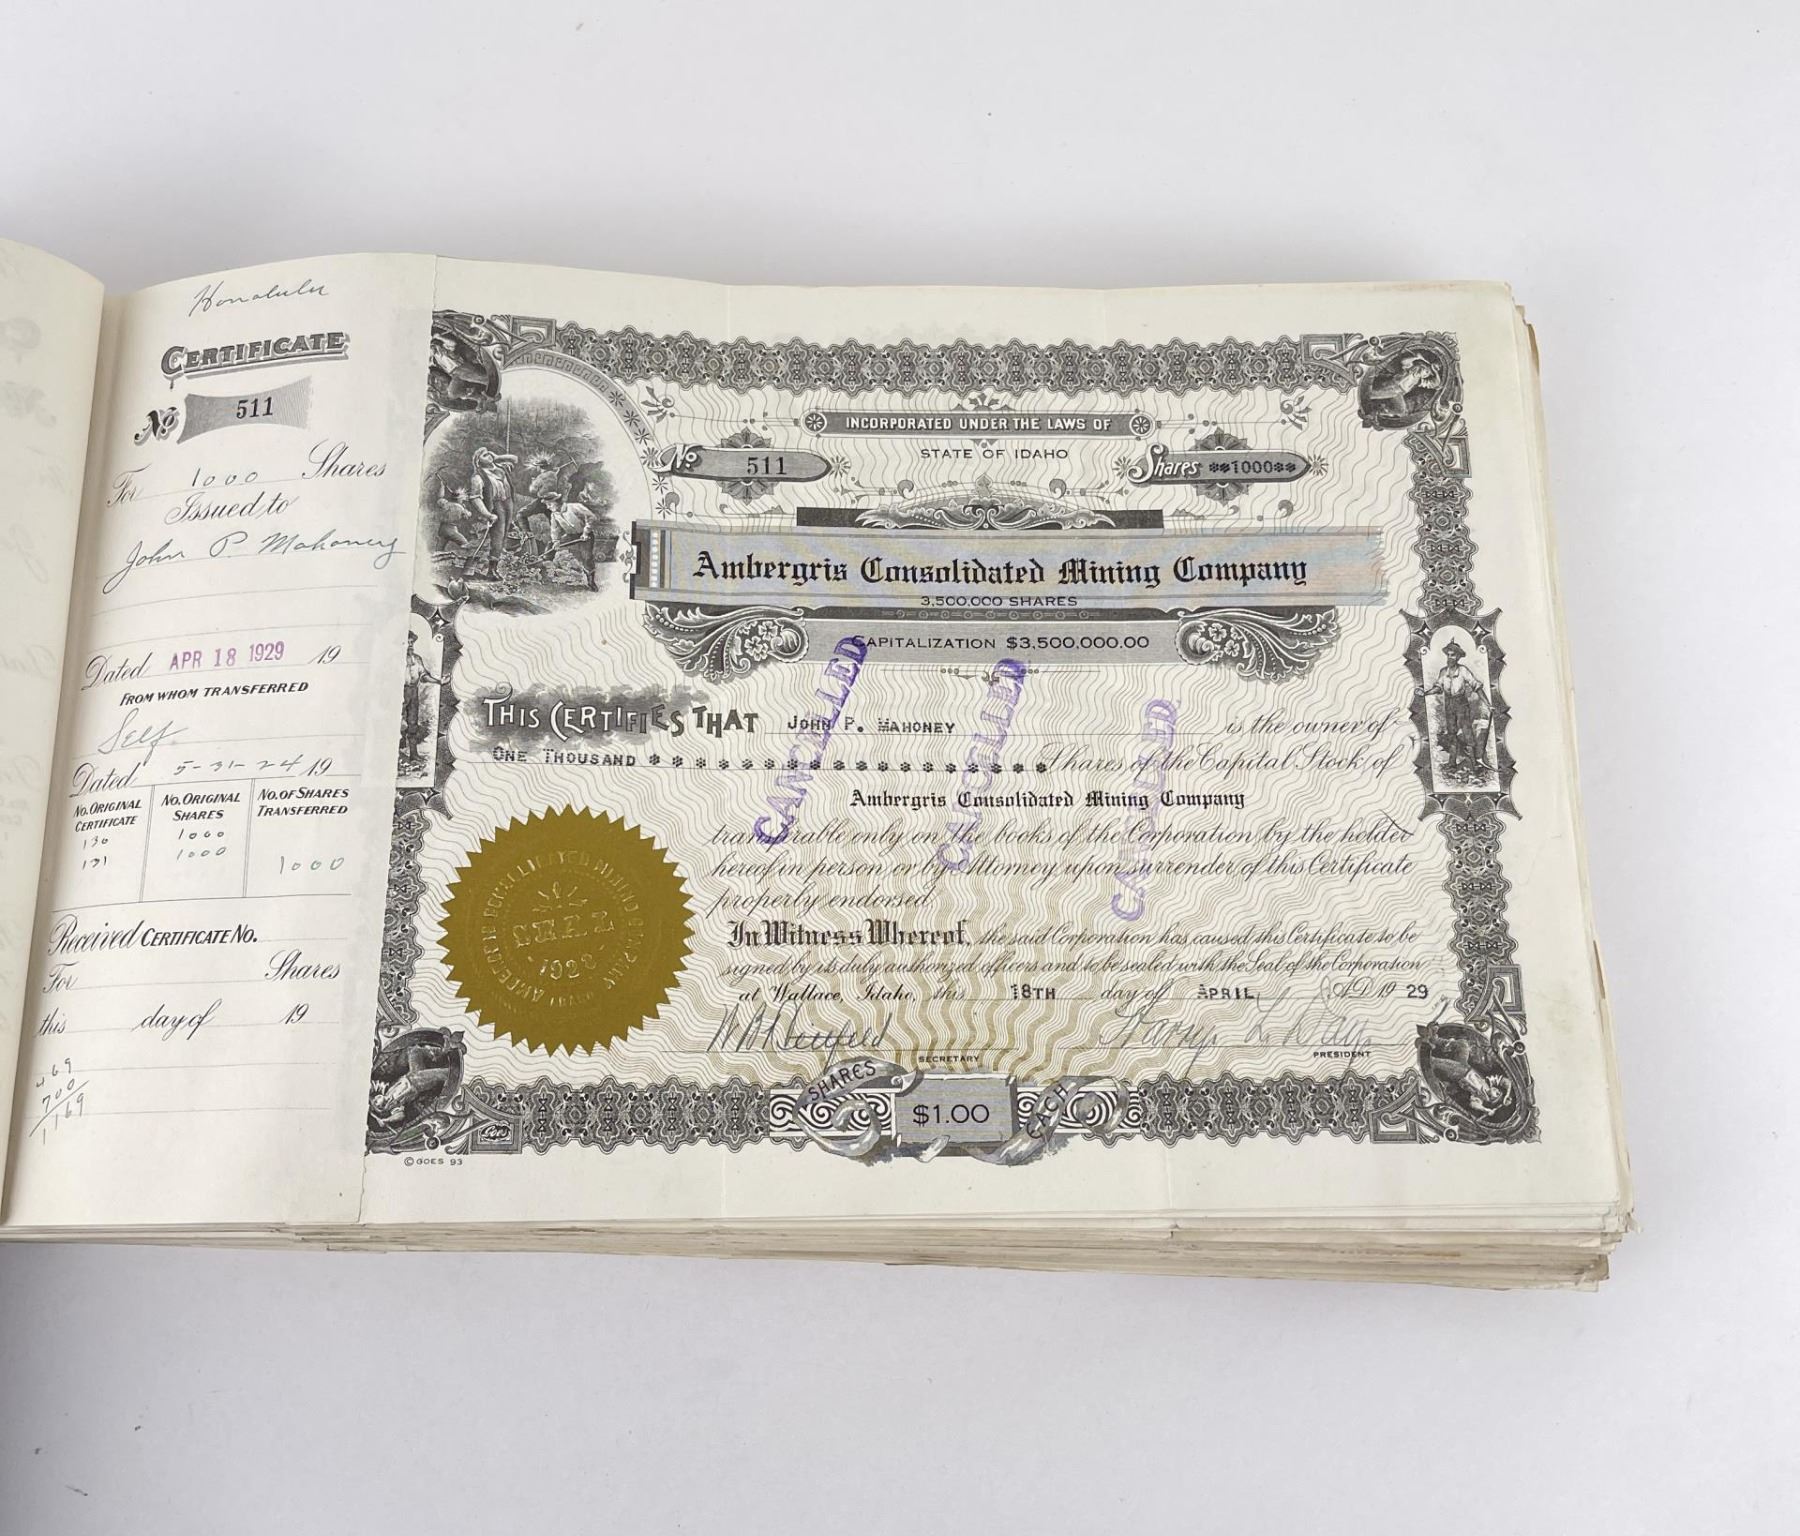 Honolulu
CERTIFICATE
No 511
For 1000 Shares
Issued to
John P Mahoney
Dated APR 18 1929 19
FROM WHOM TRANSFERRED
Self
Dated 5-31-24 19
NO. ORIGINAL CERTIFICATE NO. ORIGINAL SHARES NO. OF SHARES TRANSFERRED
130 1000
131 1000 1000
Received CERTIFICATE NO.
For Shares
this day of 19
469
700
1169
INCORPORATED UNDER THE LAWS OF
STATE OF IDAHO
No 511
Shares **1000**
Ambergris Consolidated Mining Company
3,500,000 SHARES
CAPITALIZATION $3,500,000.00
THIS CERTIFIES THAT JOHN P. MAHONEY is the owner of
ONE THOUSAND * * * * * * * * * * * * * * * * * Shares of the Capital Stock of
Ambergris Consolidated Mining Company
transferable only on the books of the Corporation by the holder
hereof in person or by Attorney upon surrender of this Certificate
properly endorsed.
In Witness Whereof, the said Corporation has caused this Certificate to be
signed by its duly authorized officers and to be sealed with the Seal of the Corporation
at Wallace, Idaho, this 18TH day of APRIL A.D. 19 29
CANCELLED
CANCELLED
CANCELLED
AMBERGRIS CONSOLIDATED MINING COMPANY
SEAL
1928
IDAHO
Harry L Day
SECRETARY
PRESIDENT
SHARES $1.00 EACH
Goes
© GOES 93